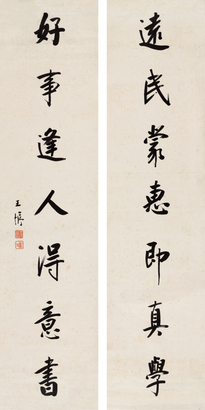 遠民蒙惠即真學
好事逢人得意書